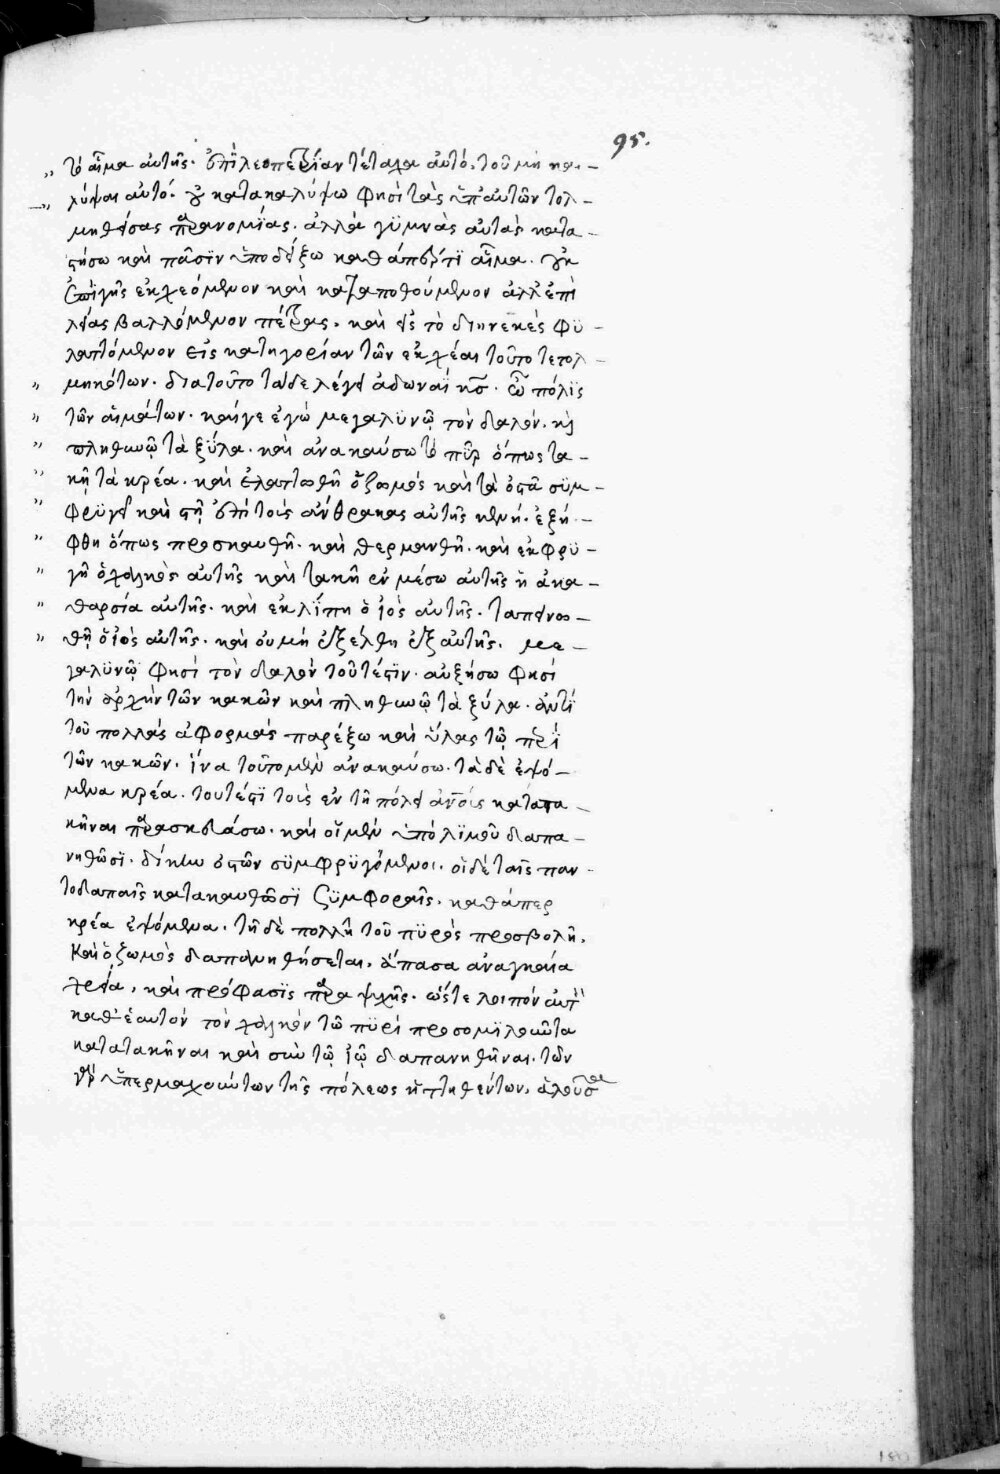 95.
τὸ αἷμα αὐτῆς. ἐπὶ λεωπετρίαν τέταχα αὐτό. τοῦ μὴ κα-
λύψαι αὐτό. οὐ κατακαλύψω φησὶ τὰς ὑπ' αὐτῶν τολ-
μηθείσας παρανομίας. ἀλλὰ γϋμνὰς αὐτὰς κατα-
στήσω καὶ πᾶσϊν ὑποδείξω καθάπερ τϊ αἷμα. οὐκ
ἐπὶ γῆς ἐκχεόμενον καὶ καταποθούμενον ἀλλ' ἐπὶ
λείας βαλλόμενον πέτρας. καὶ εἰς τὸ διηνεκὲς φϋ-
λαττόμενον εἰς κατηγορίαν τῶν ἐκχέαι τοῦτο τετολ-
μηκότων. διατοῦτο τάδε λέγει ἀδωναῒ κς. ὦ πόλϊς
τῶν αἱμάτων. καίγε ἐγὼ μεγαλϋνῶ τὸν δαλόν. καὶ
πληθυνῶ τὰ ξϋλα. καὶ ἀνακαύσω τὸ πῦρ ὅπως τα-
κῇ τὰ κρέα. καὶ ἐλαττωθῇ ὁ ζωμός καὶ τὰ ὀστᾶ σϋμ-
φρϋγεῖ καὶ στῇ ἐπὶ τοὺς ἄνθρακας αὐτῆς κενή. ἐξή-
φθη ὅπως προσκαυθῇ. καὶ θερμανθῇ. καὶ ἐκφρϋ-
γῇ ὁ χαλκὸς αὐτῆς καὶ τακῇ ἐν μέσω αὐτῆς ἡ ἀκα-
θαρσία αὐτῆς. καὶ ἐκλίπη ὁ ἰὸς αὐτῆς. ταπεινω-
θῇ ὁ ἰὸς αὐτῆς. καὶ οὐ μή ἐξέλθη ἐξ αὐτῆς. με-
γαλϋνῶ φησὶ τὸν δαλὸν τοῦτέστϊν. αὐξήσω φησὶ
τὴν ἀρχὴν τῶν κακῶν καὶ πληθυνῶ τὰ ξύλα. ἀντὶ
τοῦ πολλὰς ἀφορμὰς παρέξω καὶ ὕλας τῷ πυρὶ
τῶν κακῶν. ἵνα τοῦτο μὲν ἀνακαύσω. τὰ δὲ ἑψό-
μενα κρέα. τουτέστϊ τοὺς ἐν τῇ πόλει ἀνους κατατα-
κῆναι παρασκευάσω. καὶ οἱ μὲν ὑπὸ λϊμοῦ δαπα-
νηθῶσϊ. δίκην ὀστῶν σϋμφρϋγόμενοι. οἱ δὲ ταῖς παν-
τοδαπαῖς κατακαυθῶσϊ ζϋμφοραῖς. καθάπερ
κρέα ἑψόμενα. τῇ δὲ πολλῇ τοῦ πϋρὸς προσβολῇ.
καὶ ὁ ζωμὸς δαπανηθήσεται. ἅπασα ἀναγκαία
χρεία, καὶ πρόφασϊς παραψυχῆς. ὥστε λοιπὸν
καθ' ἑαυτὸν τὸν χαλκὸν τῷ πϋρὶ προσομϊλοῦντα
κατατακῆναι καὶ σὺν τῷ ἰῷ δαπανηθῆναι. τῶν
γὰρ ὑπερμαχούντων τῆς πόλεως ἡττηθέντων.